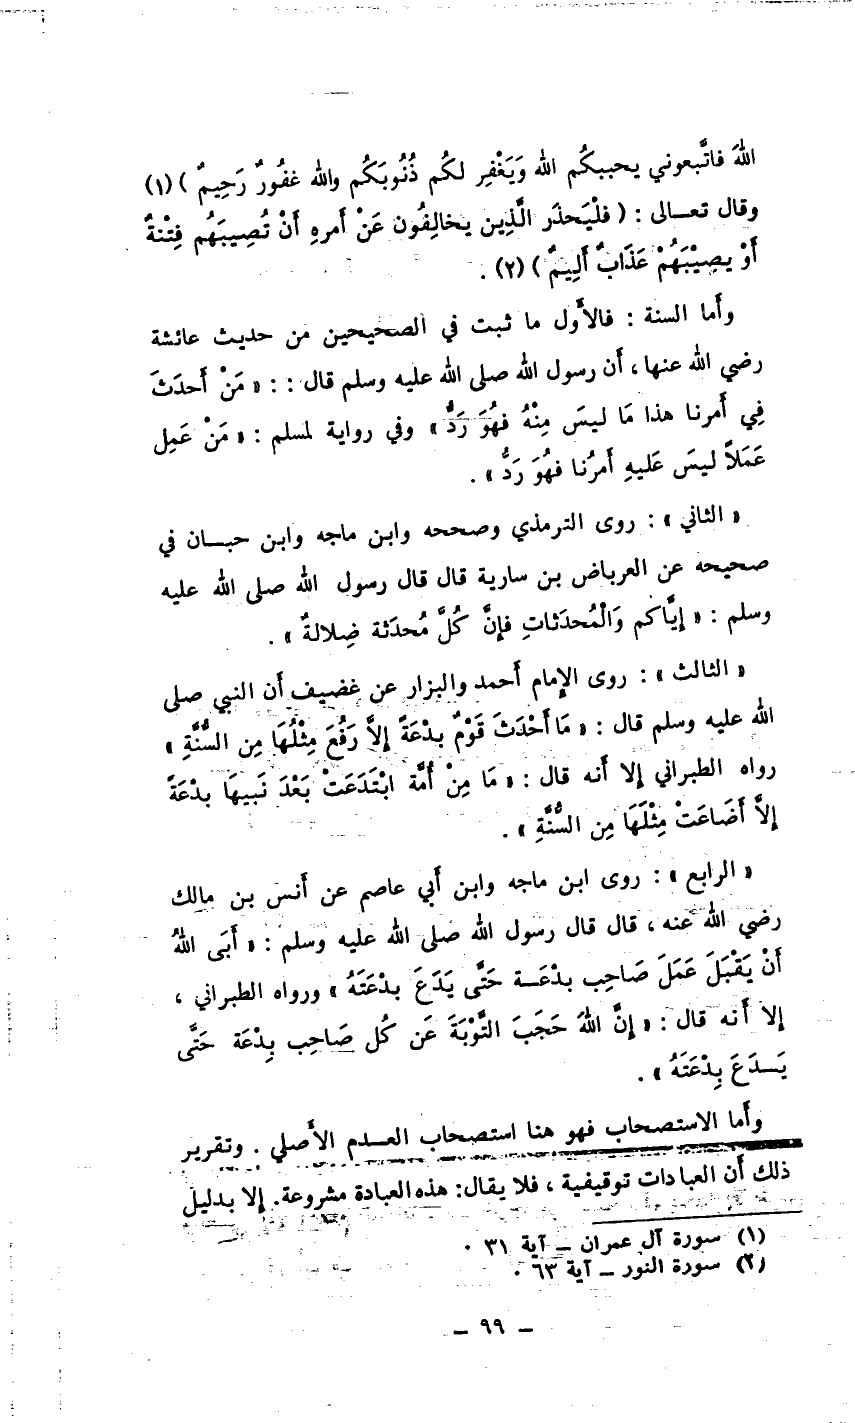 اللهَ فاتَّبعوني يحببكُم الله وَيَغْفِر لكُم ذُنُوبَكُم والله غفُورٌ رَحِيمٌ ) (١)
وقال تعـالى : ( فلْيَحذَر الَّذِين يخالِفُون عَنْ أَمرهِ أَنْ تُصِيبَهُم فِتْنةٌ
أَوْ يصِيْبَهُمْ عَذَابٌ أَلِيمٌ ) (٢) .
وأما السنة : فالأول ما ثبت في الصحيحين من حديث عائشة
رضي الله عنها ، أن رسول الله صلى الله عليه وسلم قال : : « مَنْ أَحدَثَ
فِي أَمرنا هذا مَا ليسَ مِنْهُ فهُوَ رَدٌّ » وفي رواية لمسلم : « مَنْ عَمِل
عَمَلاً ليسَ عَليهِ أَمرُنا فهُوَ رَدُّ » .
« الثاني » : روى الترمذي وصححه وابن ماجه وابن حبـان في
صحيحه عن العرباض بن سارية قال قال رسول الله صلى الله عليه
وسلم : « إيَّاكم وَالْمُحدَثاتِ فإنَّ كُلَّ مُحدَثة ضِلالةٌ » .
« الثالث » : روى الإمام أحمد والبزار عن غضيف أن النبي صلى
الله عليه وسلم قال : « مَا أَحْدَثَ قَوْمٌ بدْعَةً إلاَّ رَفُعَ مِثْلُهَا مِن السُّنَّةِ »
رواه الطبراني إلا أنه قال : « مَا مِنْ أُمَّة ابْتَدَعَتْ بَعْدَ نَبيهَا بدْعَةً
إلاَّ أَضَاعَتْ مِثْلَهَا مِن السُّنَّةِ » .
« الرابع » : روى ابن ماجه وابن أبي عاصم عن أنس بن مالك
رضي الله عنه ، قال قال رسول الله صلى الله عليه وسلم : « أَبَى اللهُ
أَنْ يَقْبَلَ عَمَلَ صَاحِب بدْعَـة حَتَّى يَدَعَ بدْعَتَهُ » ورواه الطبراني ،
إلا أنه قال : « إنَّ اللهَ حَجَبَ التَّوْبَةَ عَن كُل صَاحِب بِدْعَة حَتَّى
يَـدَعَ بِدْعَتَهُ » .
وأما الاستصحاب فهو هنا استصحاب العـدم الأصلي . وتقرير
ذلك أن العبادات توقيفية ، فلا يقال : هذه العبادة مشروعة . إلا بدليل
(١) سورة آل عمران – آية ٣١ .
(٢) سورة النور – آية ٦٣ .
– ٩٩ –